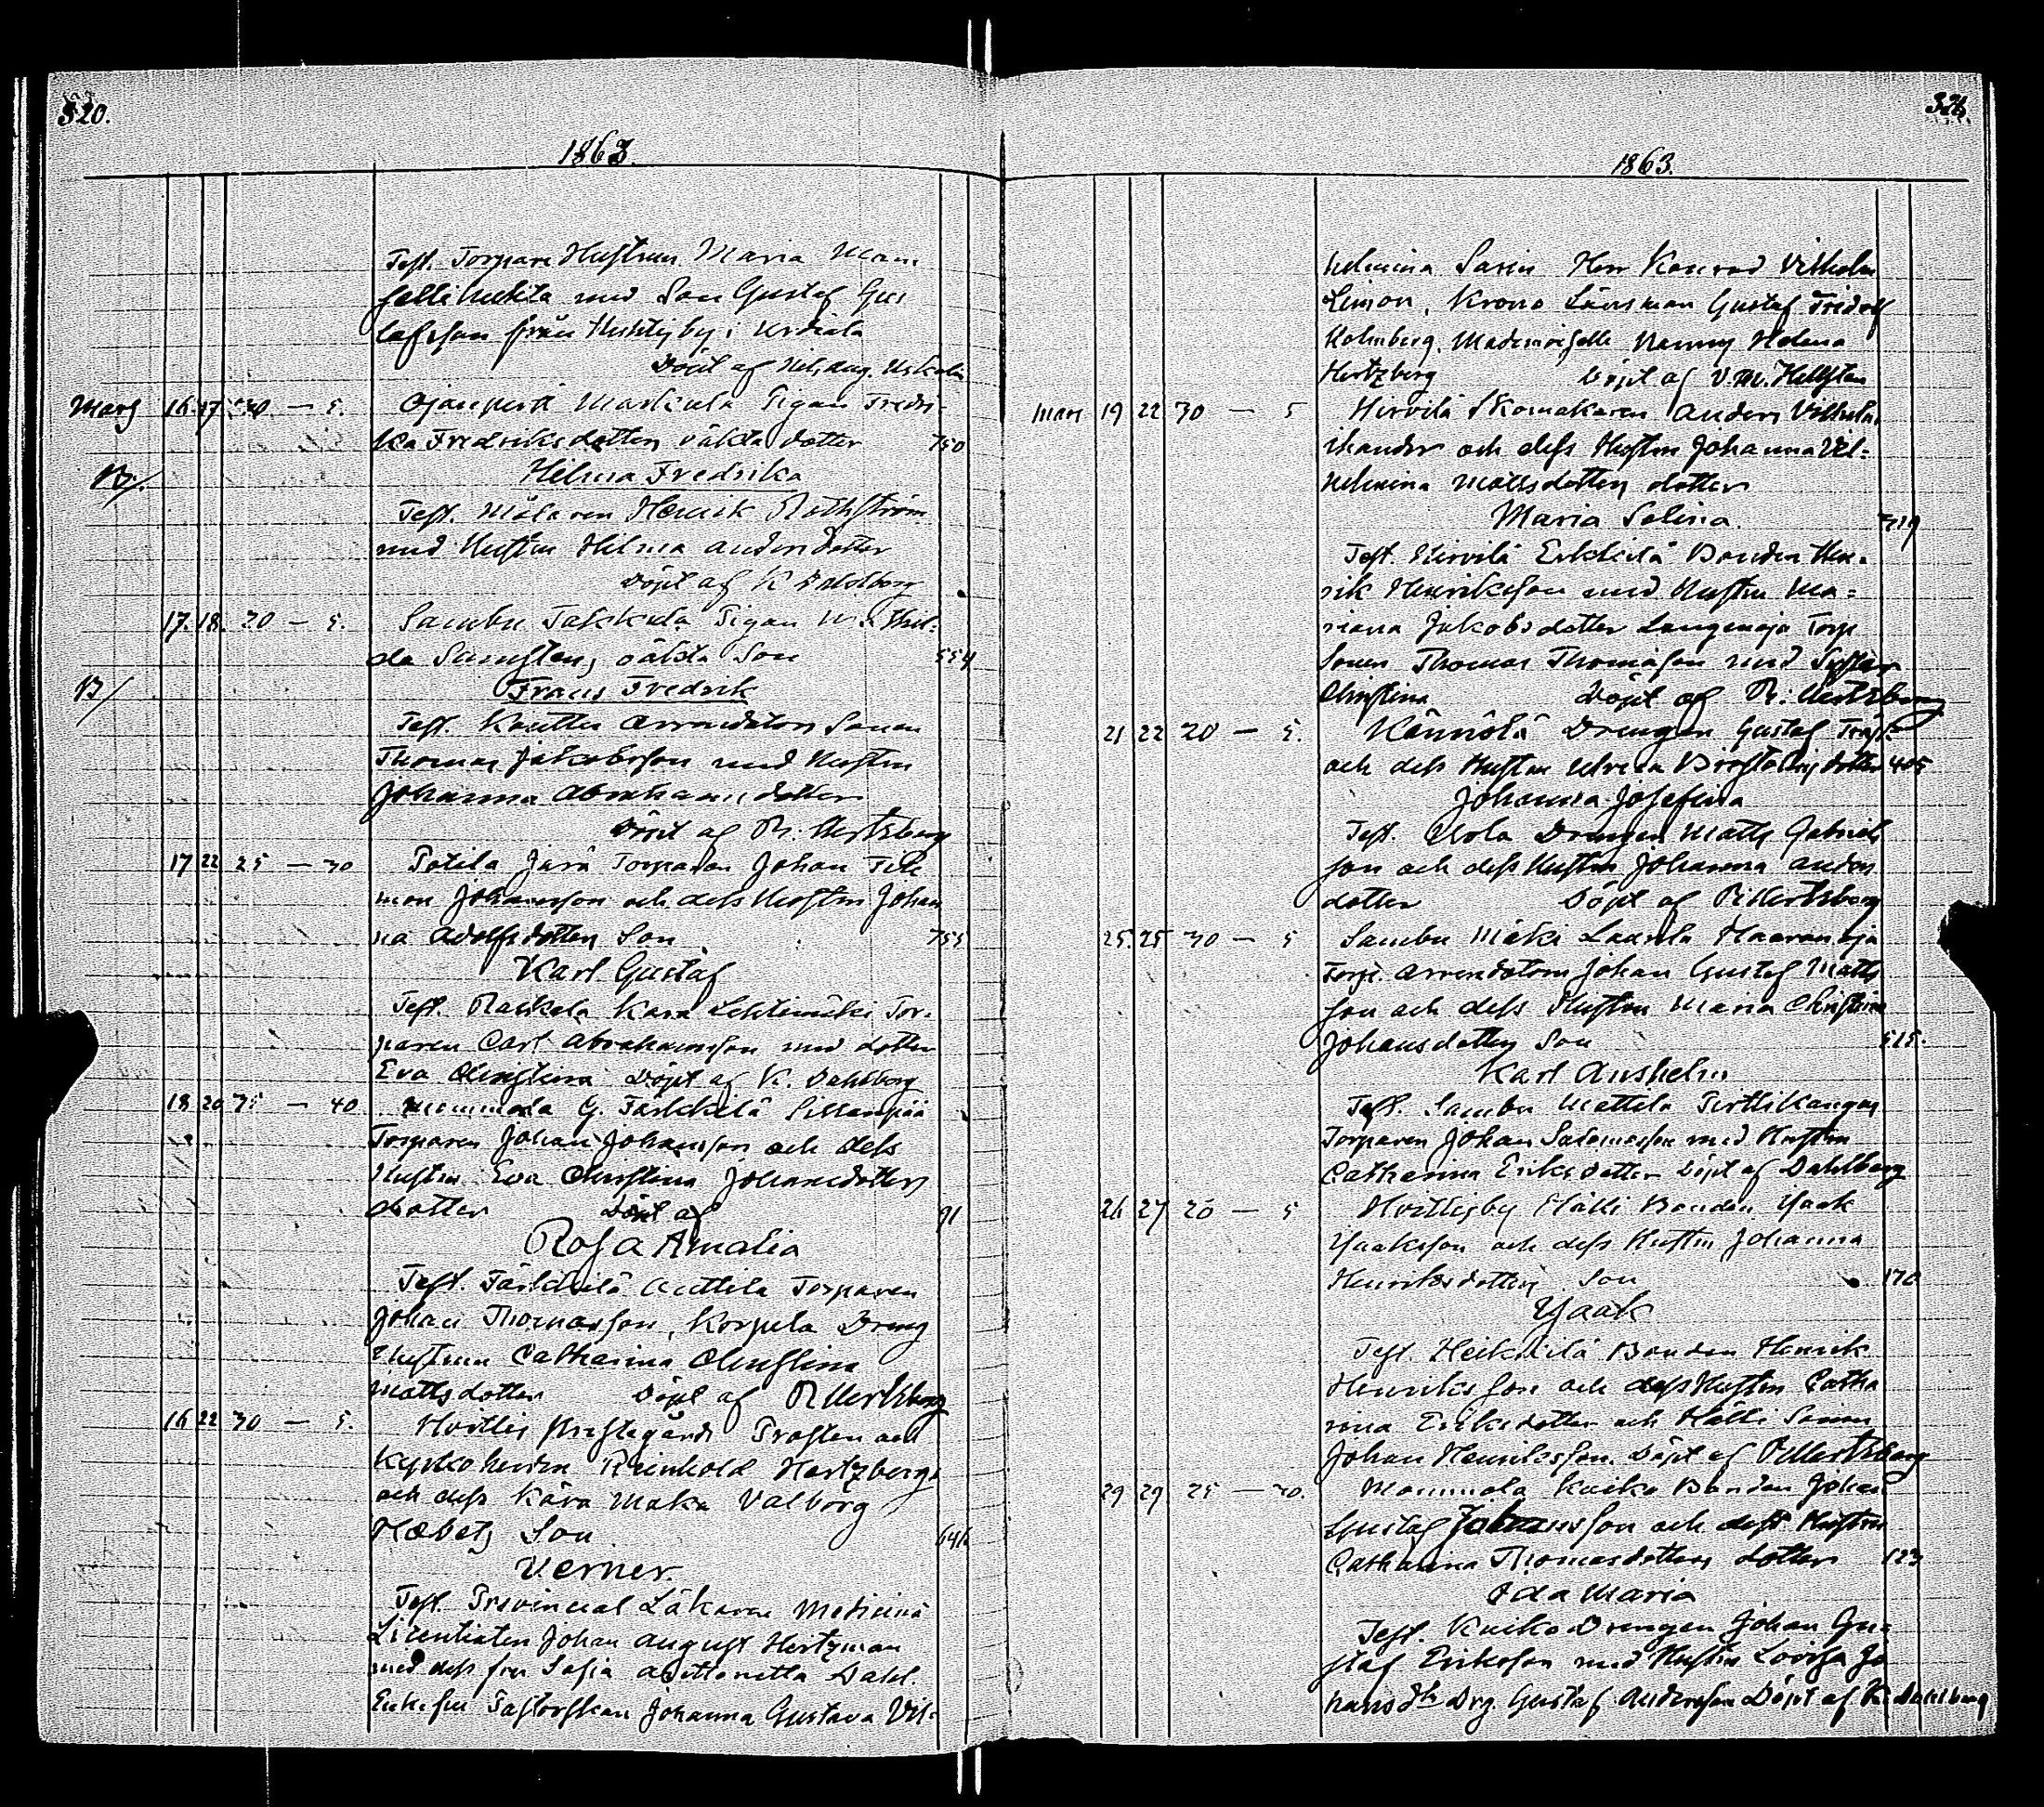 320.
1863.
Test. Torpare Hustrun Maria Mam
med Son Gustaf Gus
tafsson från Huhtis by i Urdiala
Döpt af
Mars 16. 17. 30 — 5. Ojanpertti Maskula Pigan Fredri-
ka Fredriksdotters oäkta dotter 750
B/. Helma Fredrika
Test. Målaren Henrik Rothström
med Hustru Hilma Andersdotter
Döpt af K Dahlberg
17. 18. 20 — 5. Sambu Takkula Pigan
da oäkta Son 554
B/ Frans Fredrik
Test. Kouttu Arrendators Sonen
Thomas Jakobsson med Hustru
Johanna Abrahamsdotter
Döpt af R. Hertzberg
17 22 25 — 30 Potila Jusä Torparen Johan File
mon Johansson och dess Hustru Johan
na Adolfsdotters Son 755
Karl Gustaf
Test. Raukola Kara Lehtimäki Tor-
paren Carl Abrahamsson med dotter
Eva Christina Döpt af K. Dahlberg
18 20 35 — 40 Mommola G. Tärkkilä Sillanpää
Torparen Johan Johansson och dess
Hustru Eva Christina Johansdotters
dotter Döpt af 91
Rosa Amalia
Test. Tärkkilä Anttila Torparen
Johan Thomasson, Korpela Dreng
Hustrun Catharina Christina
Mattsdotter Döpt af R Hertzberg
16 22 30 — 5. Hvittis Prestegårds Prosten och
Kyrkoherden Reinhold Hertzbergs
och dess kära Maka Valborg
Son 646
Verner.
Test. Provincial Läkaren Medicinä
Licentiaten Johan August Hertzman
med dess fru Sofia Antonetta Dahl.
Enkefru Pastorskan Johanna Gustava Vil-
321
1863.
helmina Sarin Herr Konrad Vilhelm
Limon, Krono Länsman Gustaf Fridolf
Holmberg, Mademoiselle Nanny Helena
Hertzberg Döpt af V. M. Hellsten
Mars 19 22 30 — 5 Hirvilä Skomakaren Anders Vilhelm
ikander och dess Hustru Johanna Vil-
helmina Mattsdotters dotter
Maria Selina. 719
Test. Hirvilä Erkkilä Bonden Hen-
rik Henriksson med Hustru Ma-
riana Jakobsdotter Langenoja Torp
Sonen Thomas Thomasson med Syster
Christina Döpt af R. Hertzberg
21 22 20 — 5. Kännölä Drengen Gustaf Träsk
och dess Hustru Ulrika 405
Johanna Josefina
Test. Uola Drengen Matts Gabriels
son och dess Hustru Johanna Anders
dotter Döpt af R Hertzberg
25. 25 30 — 5 Sambu Mäki Laurila Haavanoja
Torps. Arrendatorn Johan Gustaf Matts
son och dess Hustru Maria Christina
Johansdotters Son 515.
Karl Anshelm
Test. Sambu Mattila Pirttikangas
Torparen Johan Salomonsson med Hustru
Catharina Eriksdotter Döpt af Dahlberg
26 27 20 — 5 Hvittisby Hälli Bonden Isaak
Isaksson och dess Hustru Johanna
Henriksdotters Son 170
Isaak
Test. Heikkilä Bonden Henrik
Henriksson och dess Hustru Catha
rina Eriksdotter och Hälli Sonen
Johan Henriksson. Döpt af R Hertzberg
29 29 25 — 30. Mommola Kuiko Bonden Johan
Gustaf Johansson och dess Hustru
Catharina Thomasdotters dotter 123
Ida Maria
Test. Kuiko Drengen Johan Gu-
staf Eriksson med Hustru Lovisa Jo
hans dtr Drg. Gustaf Andersson Döpt af K. Dahlberg